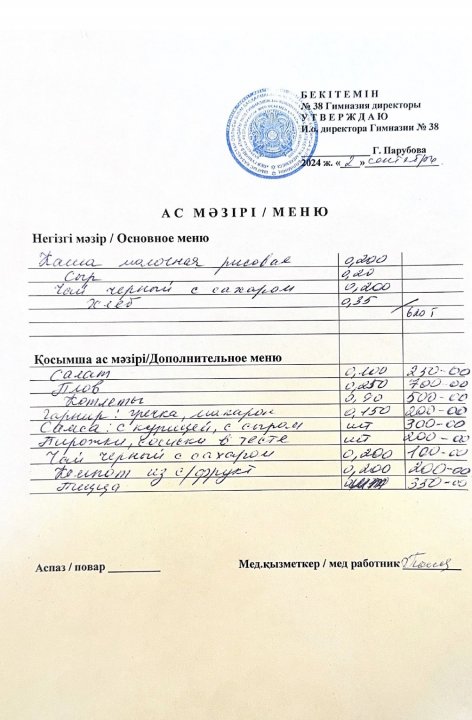 БЕКІТЕМІН
№ 38 Гимназия директоры
УТВЕРЖДАЮ
И.о. директора Гимназии № 38
Г. Парубова
2024 ж. « 2 » сентябрь
АС МӘЗІРІ / МЕНЮ
Негізгі мәзір / Основное меню
Каша молочная рисовая 0,200
Сыр 0,20
Чай черный с сахаром 0,200
Хлеб 0,35
620 т
Қосымша ас мәзірі/Дополнительное меню
Салат 0,100 250-00
Плов 0,250 700-00
Котлеты 0,90 500-00
Гарнир: гречка, макарон 0,150 200-00
Самса: с курицей, с сыром шт 300-00
Пирожки, сосиски в тесте шт 200-00
Чай черный с сахаром 0,200 100-00
Компот из с/фрукт 0,200 200-00
Пицца шт 350-00
Аспаз / повар
Мед.қызметкер / мед работник